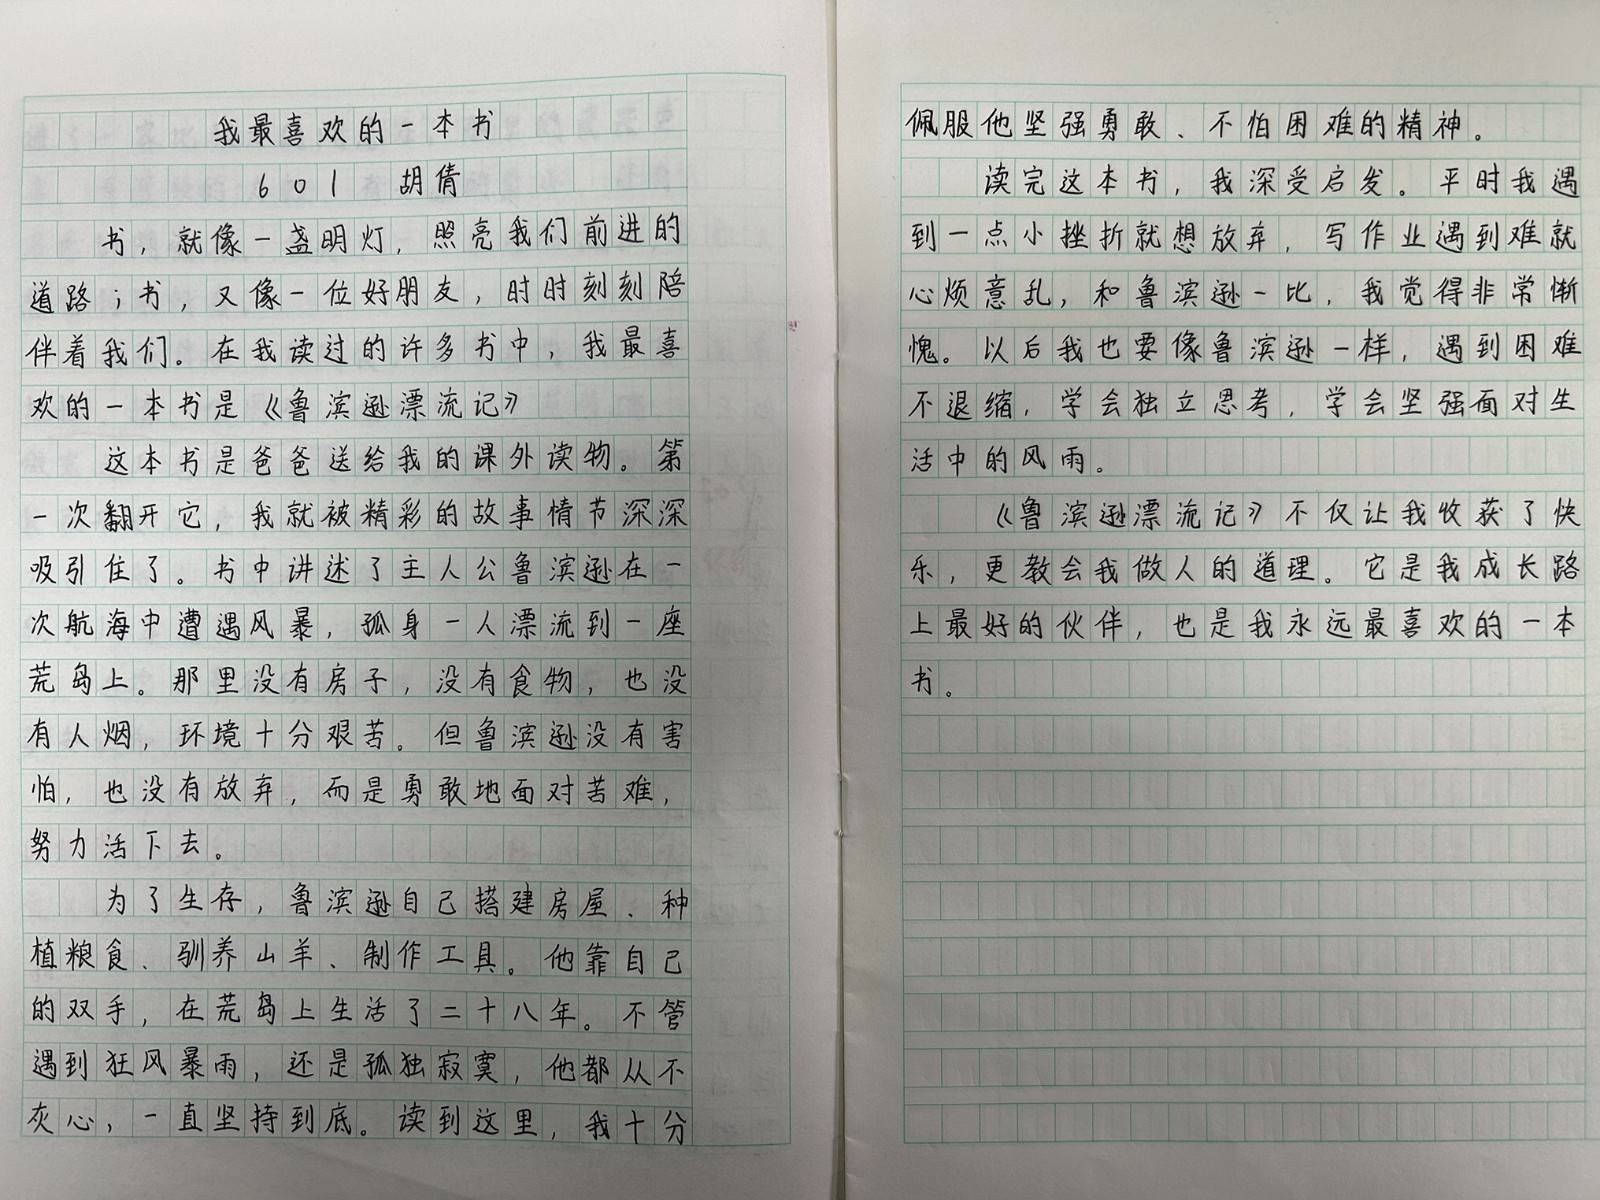 我最喜欢的一本书
601 胡倩
书，就像一盏明灯，照亮我们前进的
道路；书，又像一位好朋友，时时刻刻陪
伴着我们。在我读过的许多书中，我最喜
欢的一本书是《鲁滨逊漂流记》
这本书是爸爸送给我的课外读物。第
一次翻开它，我就被精彩的故事情节深深
吸引住了。书中讲述了主人公鲁滨逊在一
次航海中遭遇风暴，孤身一人漂流到一座
荒岛上。那里没有房子，没有食物，也没
有人烟，环境十分艰苦。但鲁滨逊没有害
怕，也没有放弃，而是勇敢地面对苦难，
努力活下去。
为了生存，鲁滨逊自己搭建房屋、种
植粮食、驯养山羊、制作工具。他靠自己
的双手，在荒岛上生活了二十八年。不管
遇到狂风暴雨，还是孤独寂寞，他都从不
灰心，一直坚持到底。读到这里，我十分
佩服他坚强勇敢、不怕困难的精神。
读完这本书，我深受启发。平时我遇
到一点小挫折就想放弃，写作业遇到难就
心烦意乱，和鲁滨逊一比，我觉得非常惭
愧。以后我也要像鲁滨逊一样，遇到困难
不退缩，学会独立思考，学会坚强面对生
活中的风雨。
《鲁滨逊漂流记》不仅让我收获了快
乐，更教会我做人的道理。它是我成长路
上最好的伙伴，也是我永远最喜欢的一本
书。